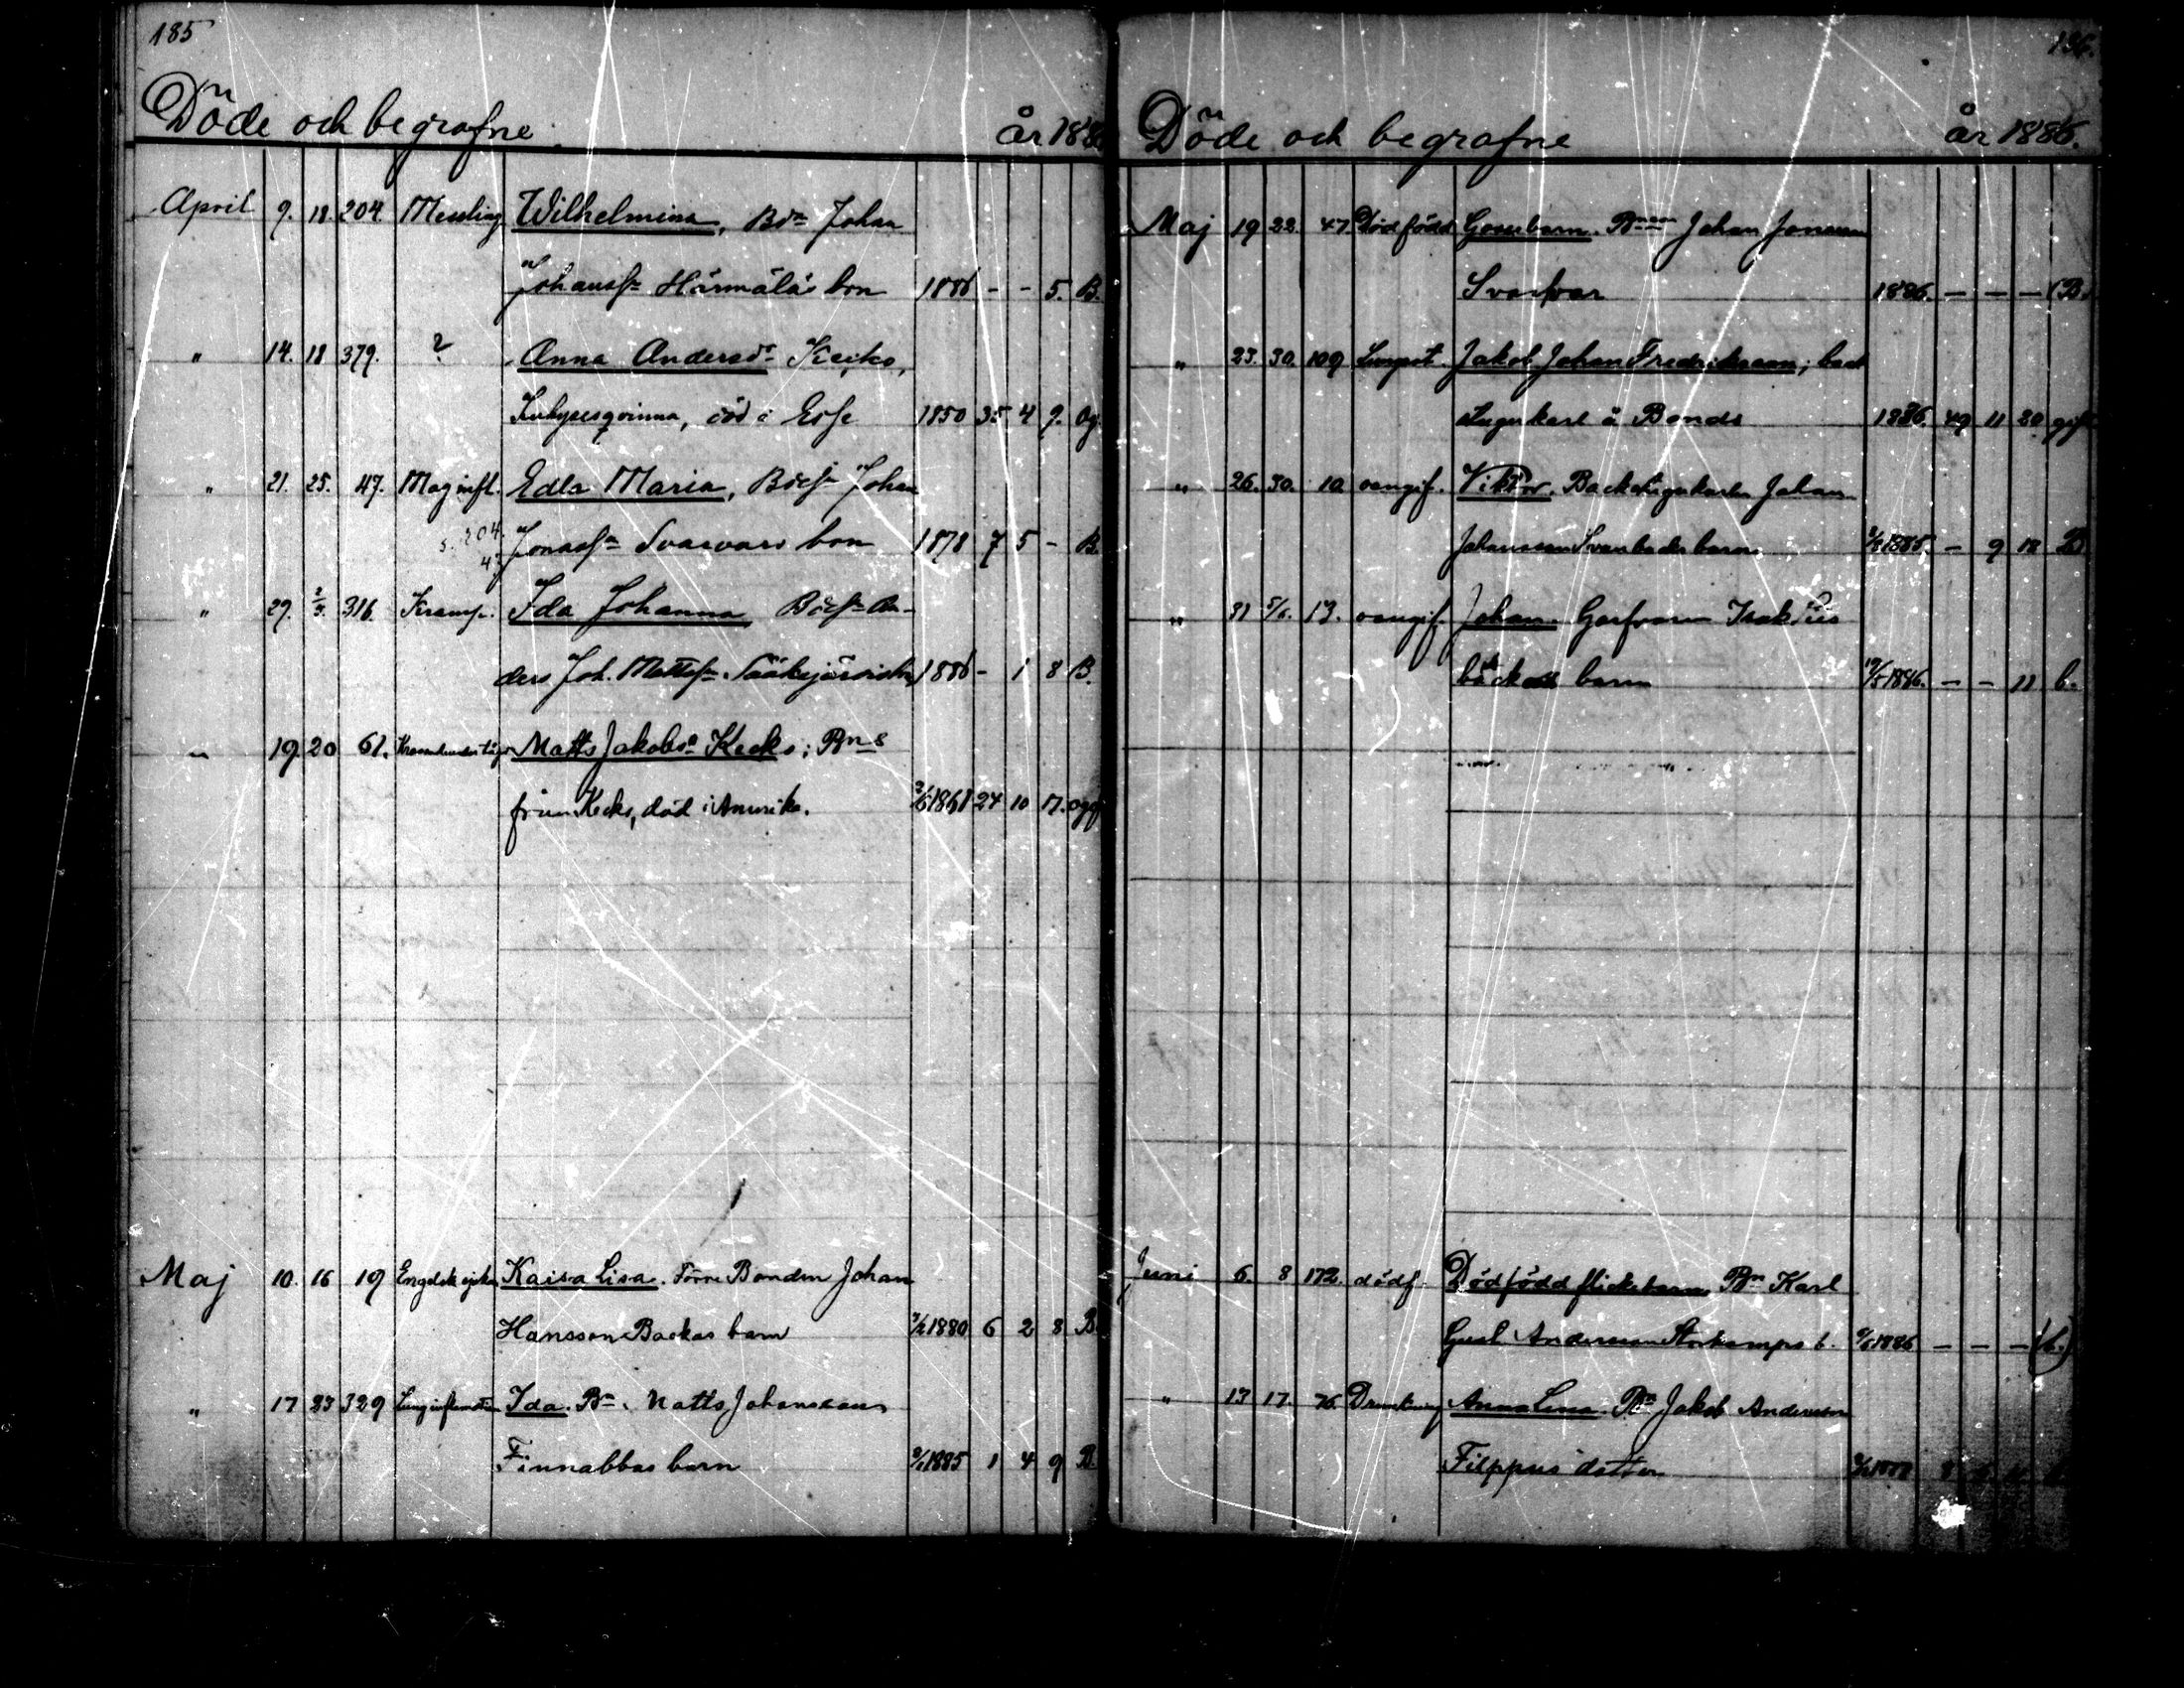 185
Döde och begrafne år 188
April 9. 18. 204. Messling Wilhelmina, Bdn Johan
Johanss. Härmäläs bon 1886 - - 5. B.
" 14. 18 379. ? Anna Andersdr Kecko,
Inhysesqvinna, död i Esse 1850 35 4 9. Og.
" 21. 25. 47. Mag infl. Edla Maria, Johan
s. 204.
47 Jonass. Svarvars bon 1878 7 5 - B.
" 29. 2/5. 316. Kramp. Ida Johanna, An-
ders Joh. Mattss. Sääksjärvis 1886 - 1 8 B.
" 19. 20 61. Matts Jakobsn Kecko; Bns
från Kecko, död i Amerika. 1861 24 10 17. ogf
Maj 10. 16 19 Engelsk sjukan Kaisa Lisa. Förre Bonden Johan
Hansson Backas barn 1880 6 2 8 B
" 17 23 329 Lunginflamation Ida. Bn. Matts Johansson
Finnabbas barn 1885 1 4 9 B.
186.
Döde och begrafne år 1886.
Maj 19 22. 47 Dödfödd Gossebarn. Johan Jonsson
Svarfvar 1886. — — — (B.)
" 23. 30. 109 Lungsot. Jakob Johan Fredriksson; back
stugukarl å Bonds 1836. 49 11 20 gift
" 26. 30. 10 oangif. Viktor. Backstugukarlen Johan
Johansson Svanbäcks barn 1885. — 9 18 B
" 31 5/6. 13. oangif. Johan. Garfvaren Isak
backa barn 19/5 1886. — — 11 b.
Juni 6. 8 172. dödf. Dödfödd flickebarn, Bn Karl
Gust. Andersson Storkamps b. 1886 — — — (b.)
" 13 17. 76. Drunkning Anna Lena. Bn Jakob Andersson
Filppus dotter